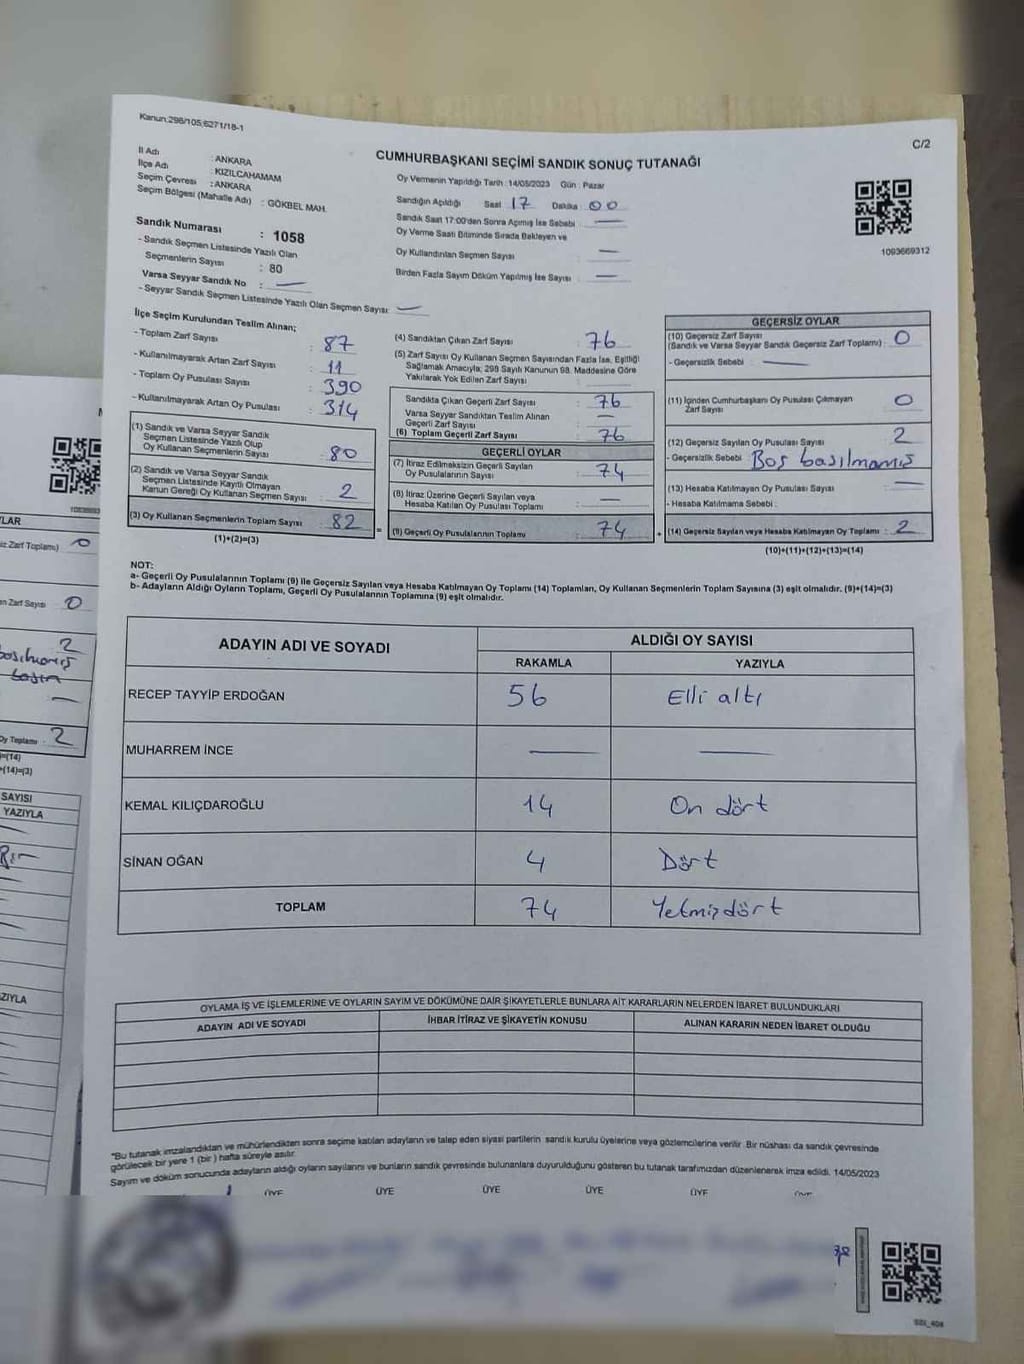 Kanun:298/105;6271/18-1
C/2
CUMHURBAŞKANI SEÇİMİ SANDIK SONUÇ TUTANAĞI
İl Adı : ANKARA
İlçe Adı : KIZILCAHAMAM
Seçim Çevresi : ANKARA
Seçim Bölgesi (Mahalle Adı) : GÖKBEL MAH.
Oy Vermenin Yapıldığı Tarih : 14/05/2023 Gün : Pazar
Sandığın Açıldığı Saat 17 Dakika : 00
Sandık Saat 17:00'den Sonra Açılmış İse Sebebi : —
Oy Verme Saati Bitiminde Sırada Bekleyen ve
Oy Kullandırılan Seçmen Sayısı : —
Birden Fazla Sayım Döküm Yapılmış İse Sayısı : —
1093669312
Sandık Numarası : 1058
- Sandık Seçmen Listesinde Yazılı Olan
Seçmenlerin Sayısı : 80
Varsa Seyyar Sandık No : —
- Seyyar Sandık Seçmen Listesinde Yazılı Olan Seçmen Sayısı: —
İlçe Seçim Kurulundan Teslim Alınan;
- Toplam Zarf Sayısı : 87
- Kullanılmayarak Artan Zarf Sayısı : 11
- Toplam Oy Pusulası Sayısı : 390
- Kullanılmayarak Artan Oy Pusulası : 314
(1) Sandık ve Varsa Seyyar Sandık
Seçmen Listesinde Yazılı Olup
Oy Kullanan Seçmenlerin Sayısı : 80
(2) Sandık ve Varsa Seyyar Sandık
Seçmen Listesinde Kayıtlı Olmayan
Kanun Gereği Oy Kullanan Seçmen Sayısı : 2
(3) Oy Kullanan Seçmenlerin Toplam Sayısı : 82
(1)+(2)=(3)
(4) Sandıktan Çıkan Zarf Sayısı : 76
(5) Zarf Sayısı Oy Kullanan Seçmen Sayısından Fazla İse, Eşitliği
Sağlamak Amacıyla; 298 Sayılı Kanunun 98. Maddesine Göre
Yakılarak Yok Edilen Zarf Sayısı :
Sandıkta Çıkan Geçerli Zarf Sayısı : 76
Varsa Seyyar Sandıktan Teslim Alınan
Geçerli Zarf Sayısı : —
(6) Toplam Geçerli Zarf Sayısı : 76
GEÇERLİ OYLAR
(7) İtiraz Edilmeksizin Geçerli Sayılan
Oy Pusulalarının Sayısı : 74
(8) İtiraz Üzerine Geçerli Sayılan veya
Hesaba Katılan Oy Pusulası Toplamı : —
= (9) Geçerli Oy Pusulalarının Toplamı : 74
GEÇERSİZ OYLAR
(10) Geçersiz Zarf Sayısı
(Sandık ve Varsa Seyyar Sandık Geçersiz Zarf Toplamı) : 0
- Geçersizlik Sebebi : —
(11) İçinden Cumhurbaşkanı Oy Pusulası Çıkmayan
Zarf Sayısı : 0
(12) Geçersiz Sayılan Oy Pusulası Sayısı : 2
- Geçersizlik Sebebi : Boş basılmamış
(13) Hesaba Katılmayan Oy Pusulası Sayısı : —
- Hesaba Katılmama Sebebi :
+ (14) Geçersiz Sayılan veya Hesaba Katılmayan Oy Toplamı : 2
(10)+(11)+(12)+(13)=(14)
NOT:
a- Geçerli Oy Pusulalarının Toplamı (9) ile Geçersiz Sayılan veya Hesaba Katılmayan Oy Toplamı (14) Toplamları, Oy Kullanan Seçmenlerin Toplam Sayısına (3) eşit olmalıdır. (9)+(14)=(3)
b- Adayların Aldığı Oyların Toplamı, Geçerli Oy Pusulalarının Toplamına (9) eşit olmalıdır.
ADAYIN ADI VE SOYADI ALDIĞI OY SAYISI
RAKAMLA YAZIYLA
RECEP TAYYİP ERDOĞAN 56 Elli altı
MUHARREM İNCE — —
KEMAL KILIÇDAROĞLU 14 On dört
SİNAN OĞAN 4 Dört
TOPLAM 74 Yetmişdört
OYLAMA İŞ VE İŞLEMLERİNE VE OYLARIN SAYIM VE DÖKÜMÜNE DAİR ŞİKAYETLERLE BUNLARA AİT KARARLARIN NELERDEN İBARET BULUNDUKLARI
ADAYIN ADI VE SOYADI İHBAR İTİRAZ VE ŞİKAYETİN KONUSU ALINAN KARARIN NEDEN İBARET OLDUĞU
"Bu tutanak imzalandıktan ve mühürlendikten sonra seçime katılan adayların ve talep eden siyasi partilerin sandık kurulu üyelerine veya gözlemcilerine verilir. Bir nüshası da sandık çevresinde
görülecek bir yere 1 (bir) hafta süreyle asılır.
Sayım ve döküm sonucunda adayların aldığı oyların sayılarını ve bunların sandık çevresinde bulunanlara duyurulduğunu gösteren bu tutanak tarafımızdan düzenlenerek imza edildi. 14/05/2023
ÜYE ÜYE ÜYE ÜYE ÜYE
LAR
iz Zarf Toplamı) 0
en Zarf Sayısı 0
2
basılmamış
Oy Toplamı : 2
=(14)
+(14)=(3)
SAYISI
YAZIYLA
AZIYLA